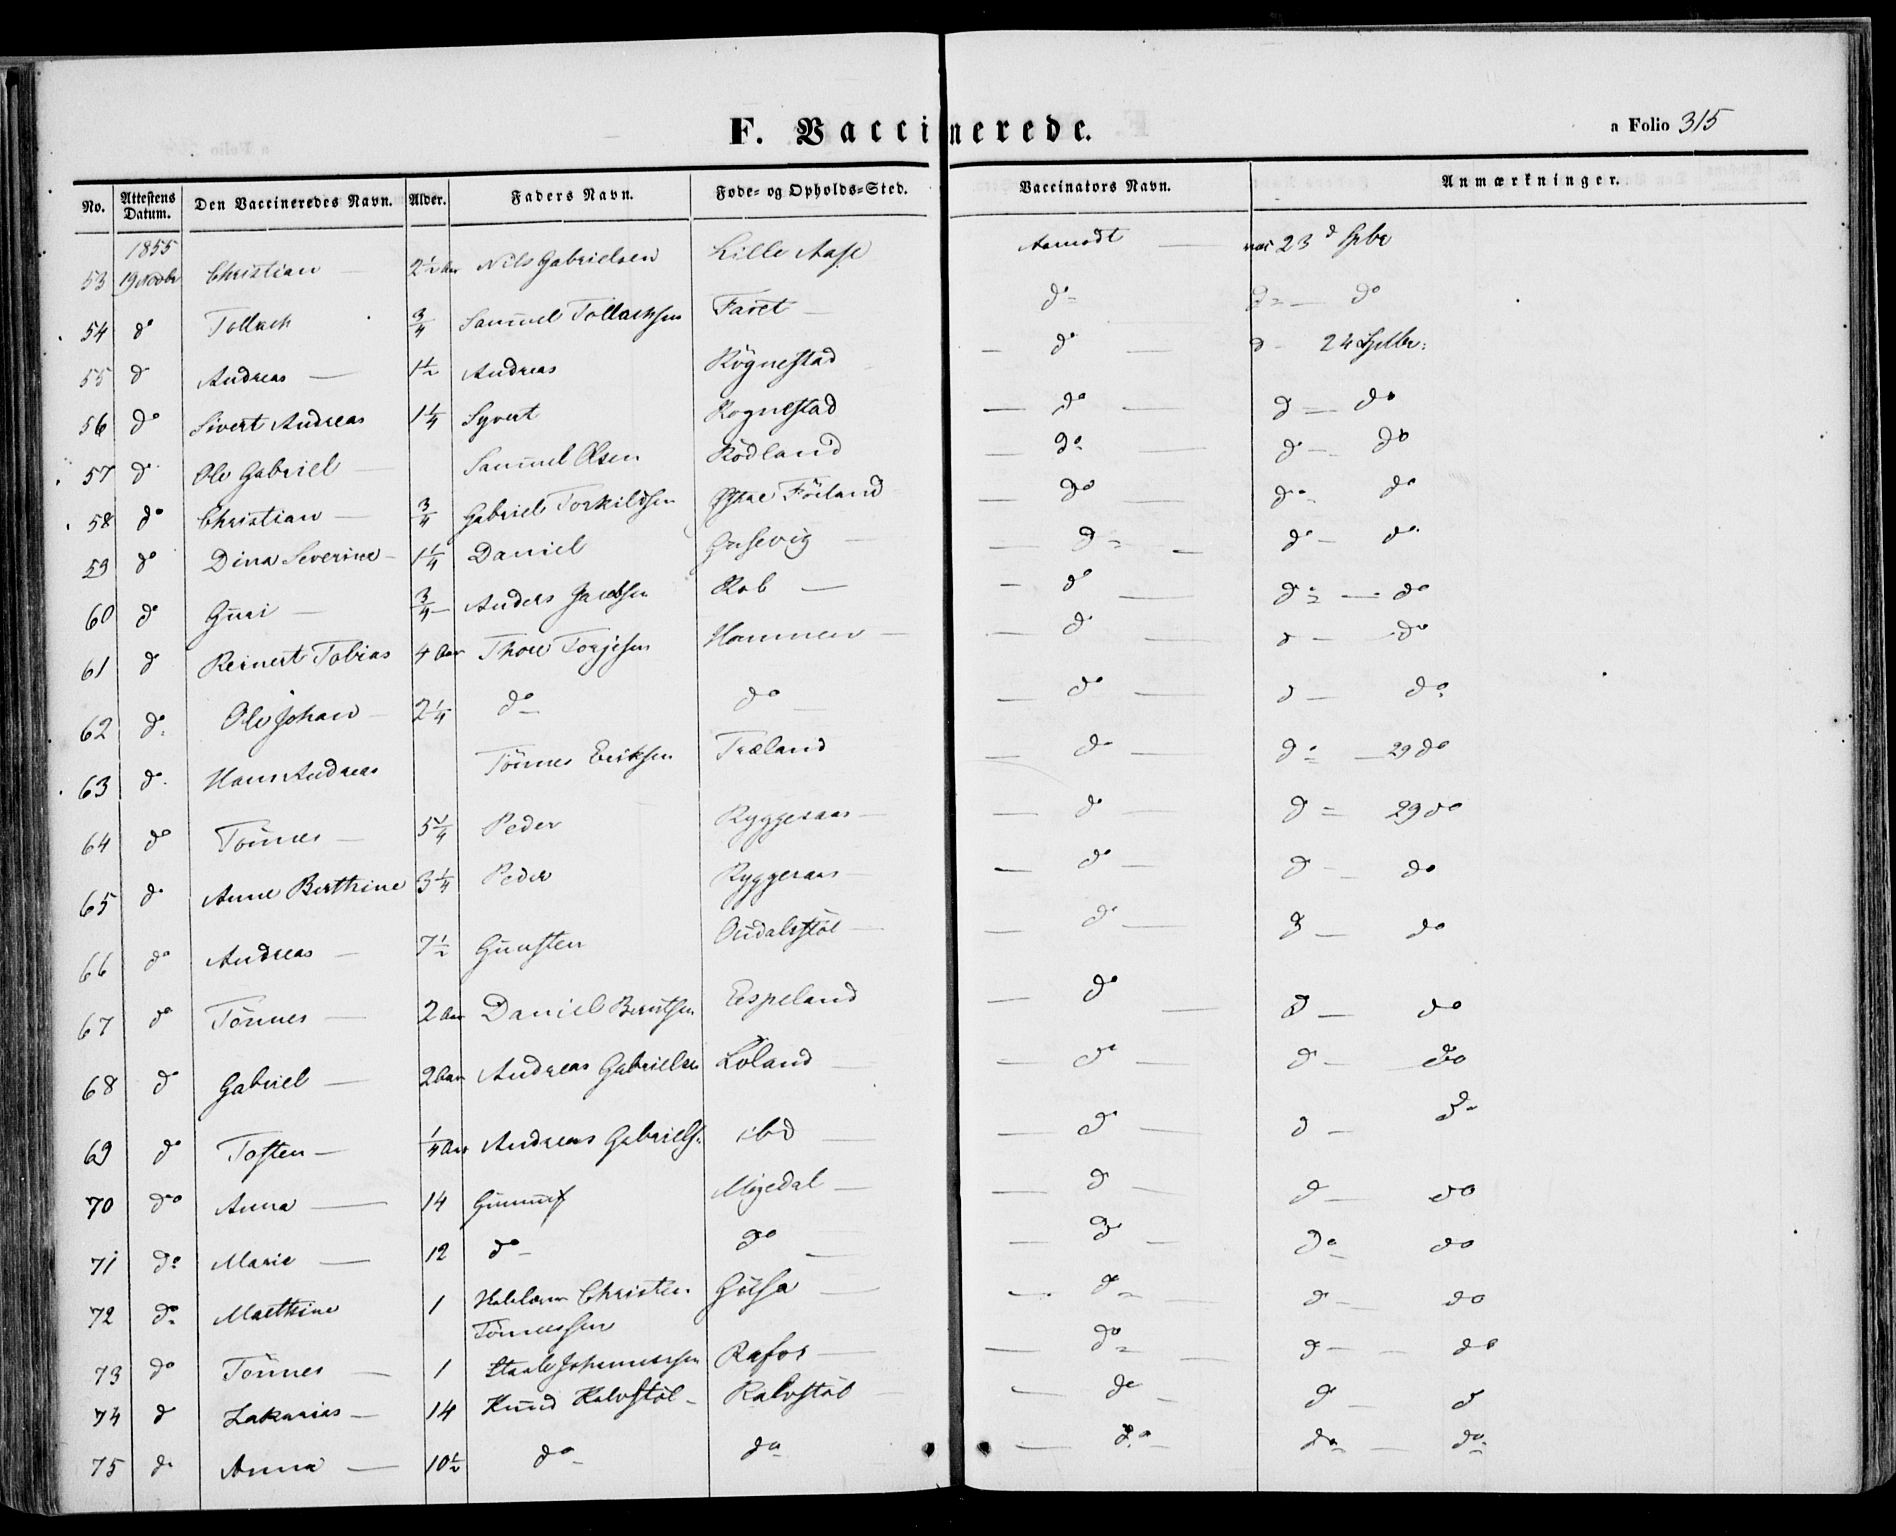 F. Vaccinerede.
a Folio 315
No. Attestens Datum. Den Vaccineredes Navn. Alder. Faders Navn. Føde- og Opholds-Sted. Vaccinators Navn. Anmærkninger.
1855
53 19 Novbr Christian — 2½ Aar Nils Gabrielsen Lille Aase Aamodt — 23d Spbr
54 do Tollach ¾ Samuel Tollachsen Faret — do do — do
55 d Andreas — 1½ Andreas Rögnestad — do — d — 24 Septbr:
56 do Sivert Andreas 1¼ Syvert Rognestad — do — d — do
57 d Ole Gabriel — Samuel Olsen Rödland — do — d — do
58 do Christian — ¾ Gabriel Torkildsen Östre Föiland — do — do do
59 do Dina Severine — 1¼ Daniel — d — do — do
60 do Guri — ¾ Anders Jacobsen Rob — — do — d — do
61 d Reinert Tobias 4 Aar Thore Torjesen Hammen — — d — d — do
62 do Ole Johan — 2¼ do do — — do — d — do
63 do Hans Andreas Tönnes Eriksen Træland — do — d — 29 do
64 do Tönnes — 5¼ Peder Ryggesaas — — do — d — 29 do
65 do Anne Berthine 3¼ Peder Ryggesaas — — do — d — do
66 do Andreas — 7½ Gunsten — do — d — do
67 do Tönnes — 2 Aar Daniel Berntsen Espeland — do — d — do
68 d Gabriel — 2 Aar Andreas Gabrielsen Loland — — do — d — do
69 do Tosten — ¼ Aar Andreas Gabriels. ibd — — d — d — do
70 do Anna — 14 Gunnuf Mygedal — — d — d — do
71 do Marie — 12 do do — — do — do do
72 do Maethine 1 Christen Gusa — — d — d — do
Tönnessen
73 do Tönnes — 1 Staale Johannessen Rafos — — do — d — do
74 d Zakarias — 14 Knud Kalvstöl — Kalvstöl — — do — d — d
75 d Anna — 10½ do do — do — do — do